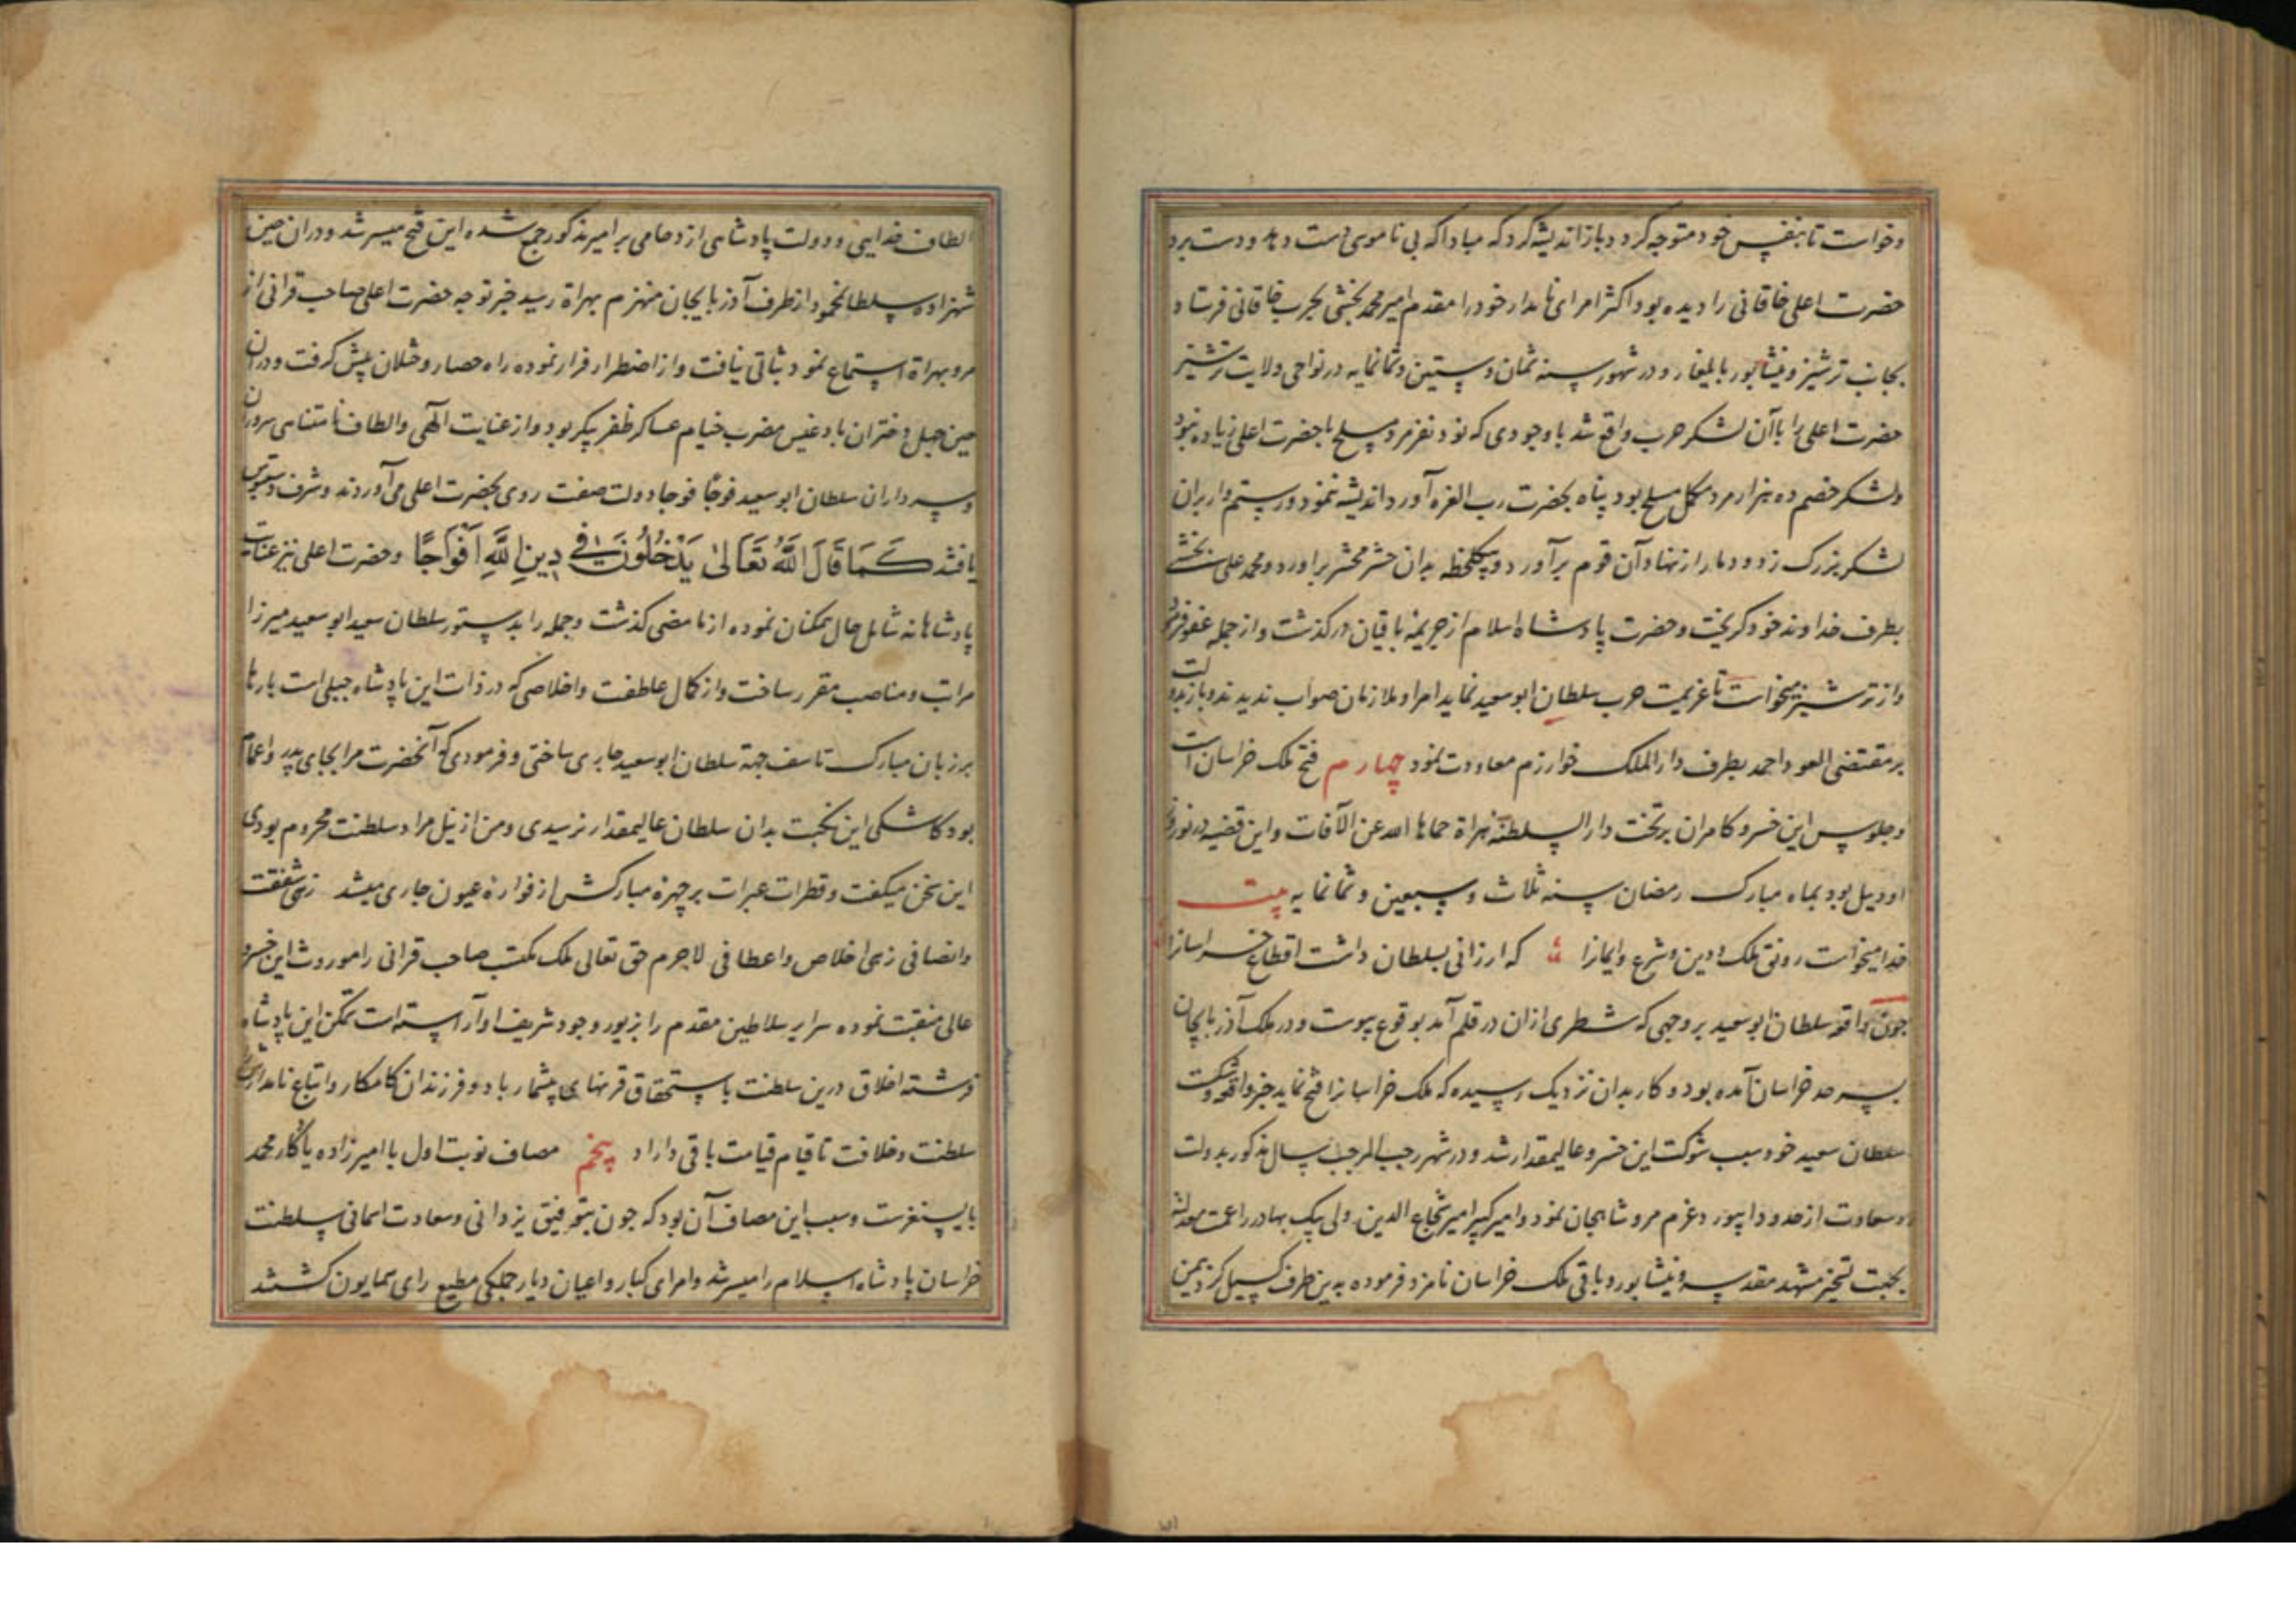 وخواست تا بنفس خود متوجه کردد و باز اندیشه کرد که مبادا که بی ناموسی دست دهد و دست برد
حضرت اعلی خاقانی را دیده بود اکثر امرای نامدار خود را مقدم امیر محمد بخشی بحرب خاقانی فرستاد
بجانب ترشیز و نیشابور بایلغار و در شهور سنه ثمان و ستین و ثمانمایه در نواحی ولایت ترشیز
حضرت اعلی را باآن لشکر حرب واقع شد باوجودی که نود نفر مرد مسلح با حضرت اعلی زیاده نبود
ولشکر خصم ده هزار مرد مکمل مسلح بود پناه بحضرت رب العزه آورد و اندیشه ننمود و رستم وار بران
لشکر بزرک زد و دمار از نهاد آن قوم برآورد و بیکلحظه بدان حشر محشر براورد و محمد علی بخشی
بطرف خداوند خود کریخت و حضرت پادشاه اسلام از جریمهٔ باقیان درکذشت و از جمله عفو فرمود
واز ترشیز میخواست تا عزیمت حرب سلطان ابوسعید نماید امرا و ملازمان صواب ندیدند و باز بدولت
بر مقتضی العود احمد بطرف دارالملک خوارزم معاودت نمود چهارم فتح ملک خراسان است
وجلوس این خسرو کامران بر تخت دار السلطنه هراة حماها الله عن الآفات و این قضیه در نوروز
اودییل بود بماه مبارک رمضان سنه ثلاث و سبعین و ثمانمایه بیت
خدا میخواست رونق ملک و دین و شرع و ایمانرا که ارزانی بسلطان داشت اقطاع خراسانرا
چون واقعه سلطان ابوسعید بر وجهی که شطری ازان در قلم آمد بوقوع پیوست و در ملک آذربایجان
بسرحد خراسان آمده بود و کار بدان نزدیک رسیده که ملک خراسانرا فتح نماید خبر واقعه و شکست
سلطان سعید خود سبب شوکت این خسرو عالیمقدار شد و در شهر رجب المرجب سال مذکور بدولت
وسعادت از حدود ابیورد عزم مرو شاهجان نمود و امیرکبیر امیر شجاع الدین ولی بیک بهادر راعمت معدلته
بجهت تسخیر مشهد مقدسه و نیشابور و باقی ملک خراسان نامزد فرموده بدین طرف کسیل کرد و بیمن
الطاف خدایی و دولت پادشاهی ازدحامی بر امیر مذکور جمع شده این فتح میسر شد و دران حین
شهزاده سلطانمحمود از طرف آذربایجان منهزم بهراة رسید خبر توجه حضرت اعلی صاحب قرانی از
مرو بهراة استماع نمود ثباتی نیافت و از اضطرار فرار نموده راه حصار و ختلان پیش کرفت و دران
حین جبل دختران بادغیس مضرب خیام عساکر ظفر پیکر بود و از عنایت الهی و الطاف نامتناهی سروران
وسرداران سلطان ابوسعید فوجًا فوجا دولت صفت روی بحضرت اعلی می آوردند و شرف دستبوس
یافتند كَمَا قَالَ اللَّهُ تَعَالىٰ يَدْخُلُونَ فِي دِينِ اللَّهِ اَفْوَاجًا وحضرت اعلی نیز عنایت
پادشاهانه شامل حال همکنان نموده از ما مضی کذشت و جمله را بدستور سلطان سعید ابوسعید میرزا
مراتب و مناصب مقرر ساخت و از کمال عاطفت و اخلاصی که در ذات این پادشاه جبلی است بارها
بر زبان مبارک تاسف جهة سلطان ابوسعید جاری ساختی و فرمودی که آنحضرت مرا بجای پدر و اعمام
بود کاشکی این نکبت بدان سلطان عالیمقدار نرسیدی و من از نیل مراد سلطنت محروم بودمی
این سخن میکفت و قطرات عبرات بر چهرهٔ مبارکش از فوارهٔ عیون جاری میشد زهی شفقت
وانصافی زهی اخلاص و اعطافی لاجرم حق تعالی ملک مکتسب صاحب قرانی را موروث این خسرو
عالی منقبت نموده سرایر سلاطین مقدم را بزیور وجود شریف او آراسته است تمکن این پادشاه
فرشته اخلاق درین سلطنت باستحقاق قرنهای بیشمار باد و فرزندان کامکار و اتباع نامدار
سلطنت و خلافت تا قیام قیامت باقی داراد پنجم مصاف نوبت اول با امیرزاده یادکار محمد
بایسنغرست و سبب این مصاف آن بود که چون بتوفیق یزدانی و سعادت اسمانی سلطنت
خراسان پادشاه اسلام را میسر شد و امرای کبار و اعیان دیار جملکی مطیع رای همایون کشتند